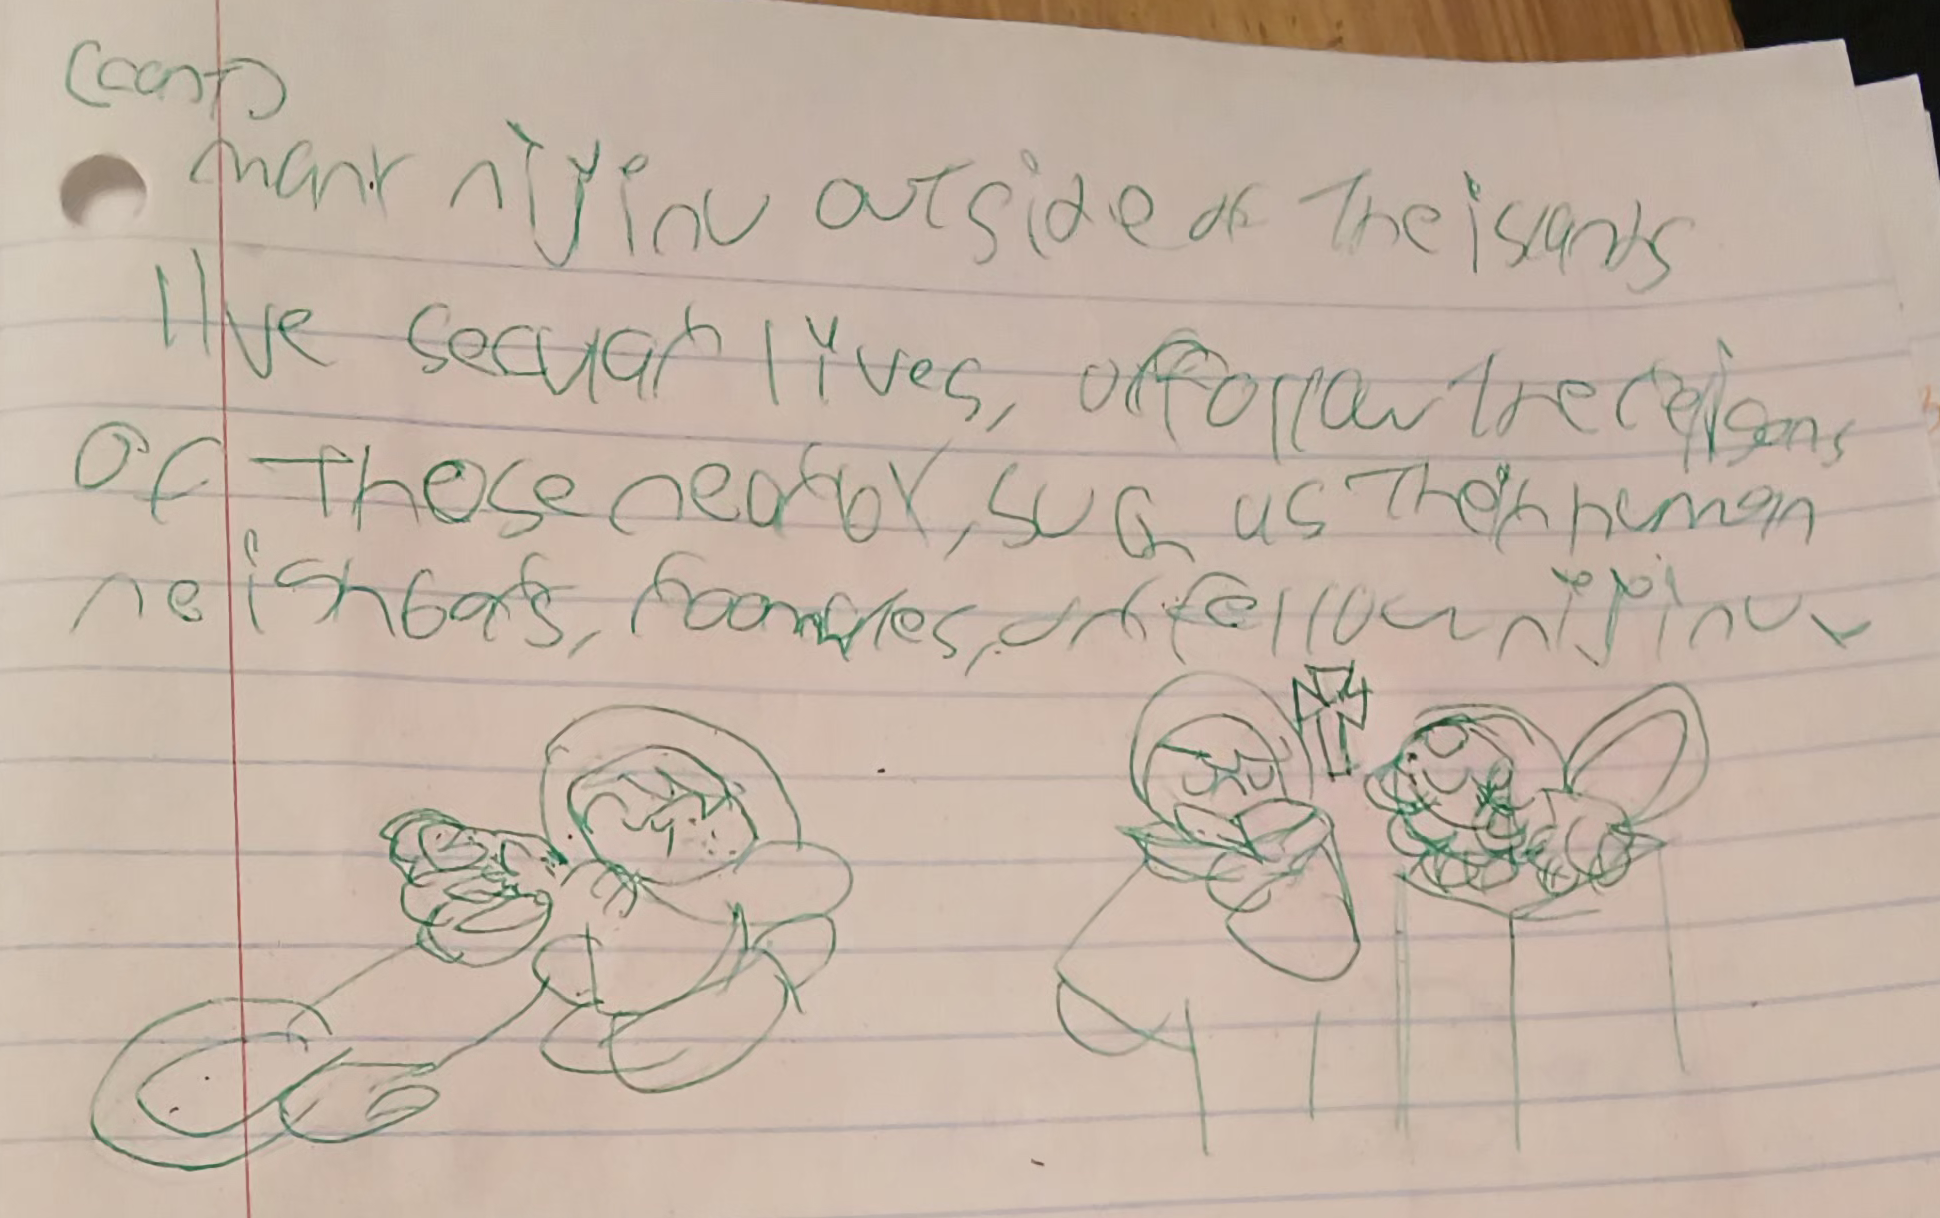 (cont)
many nijinu outside of the islands
live secular lives, or follow the religions
of those nearby, such as their human
neighbors, and fellow nijinu